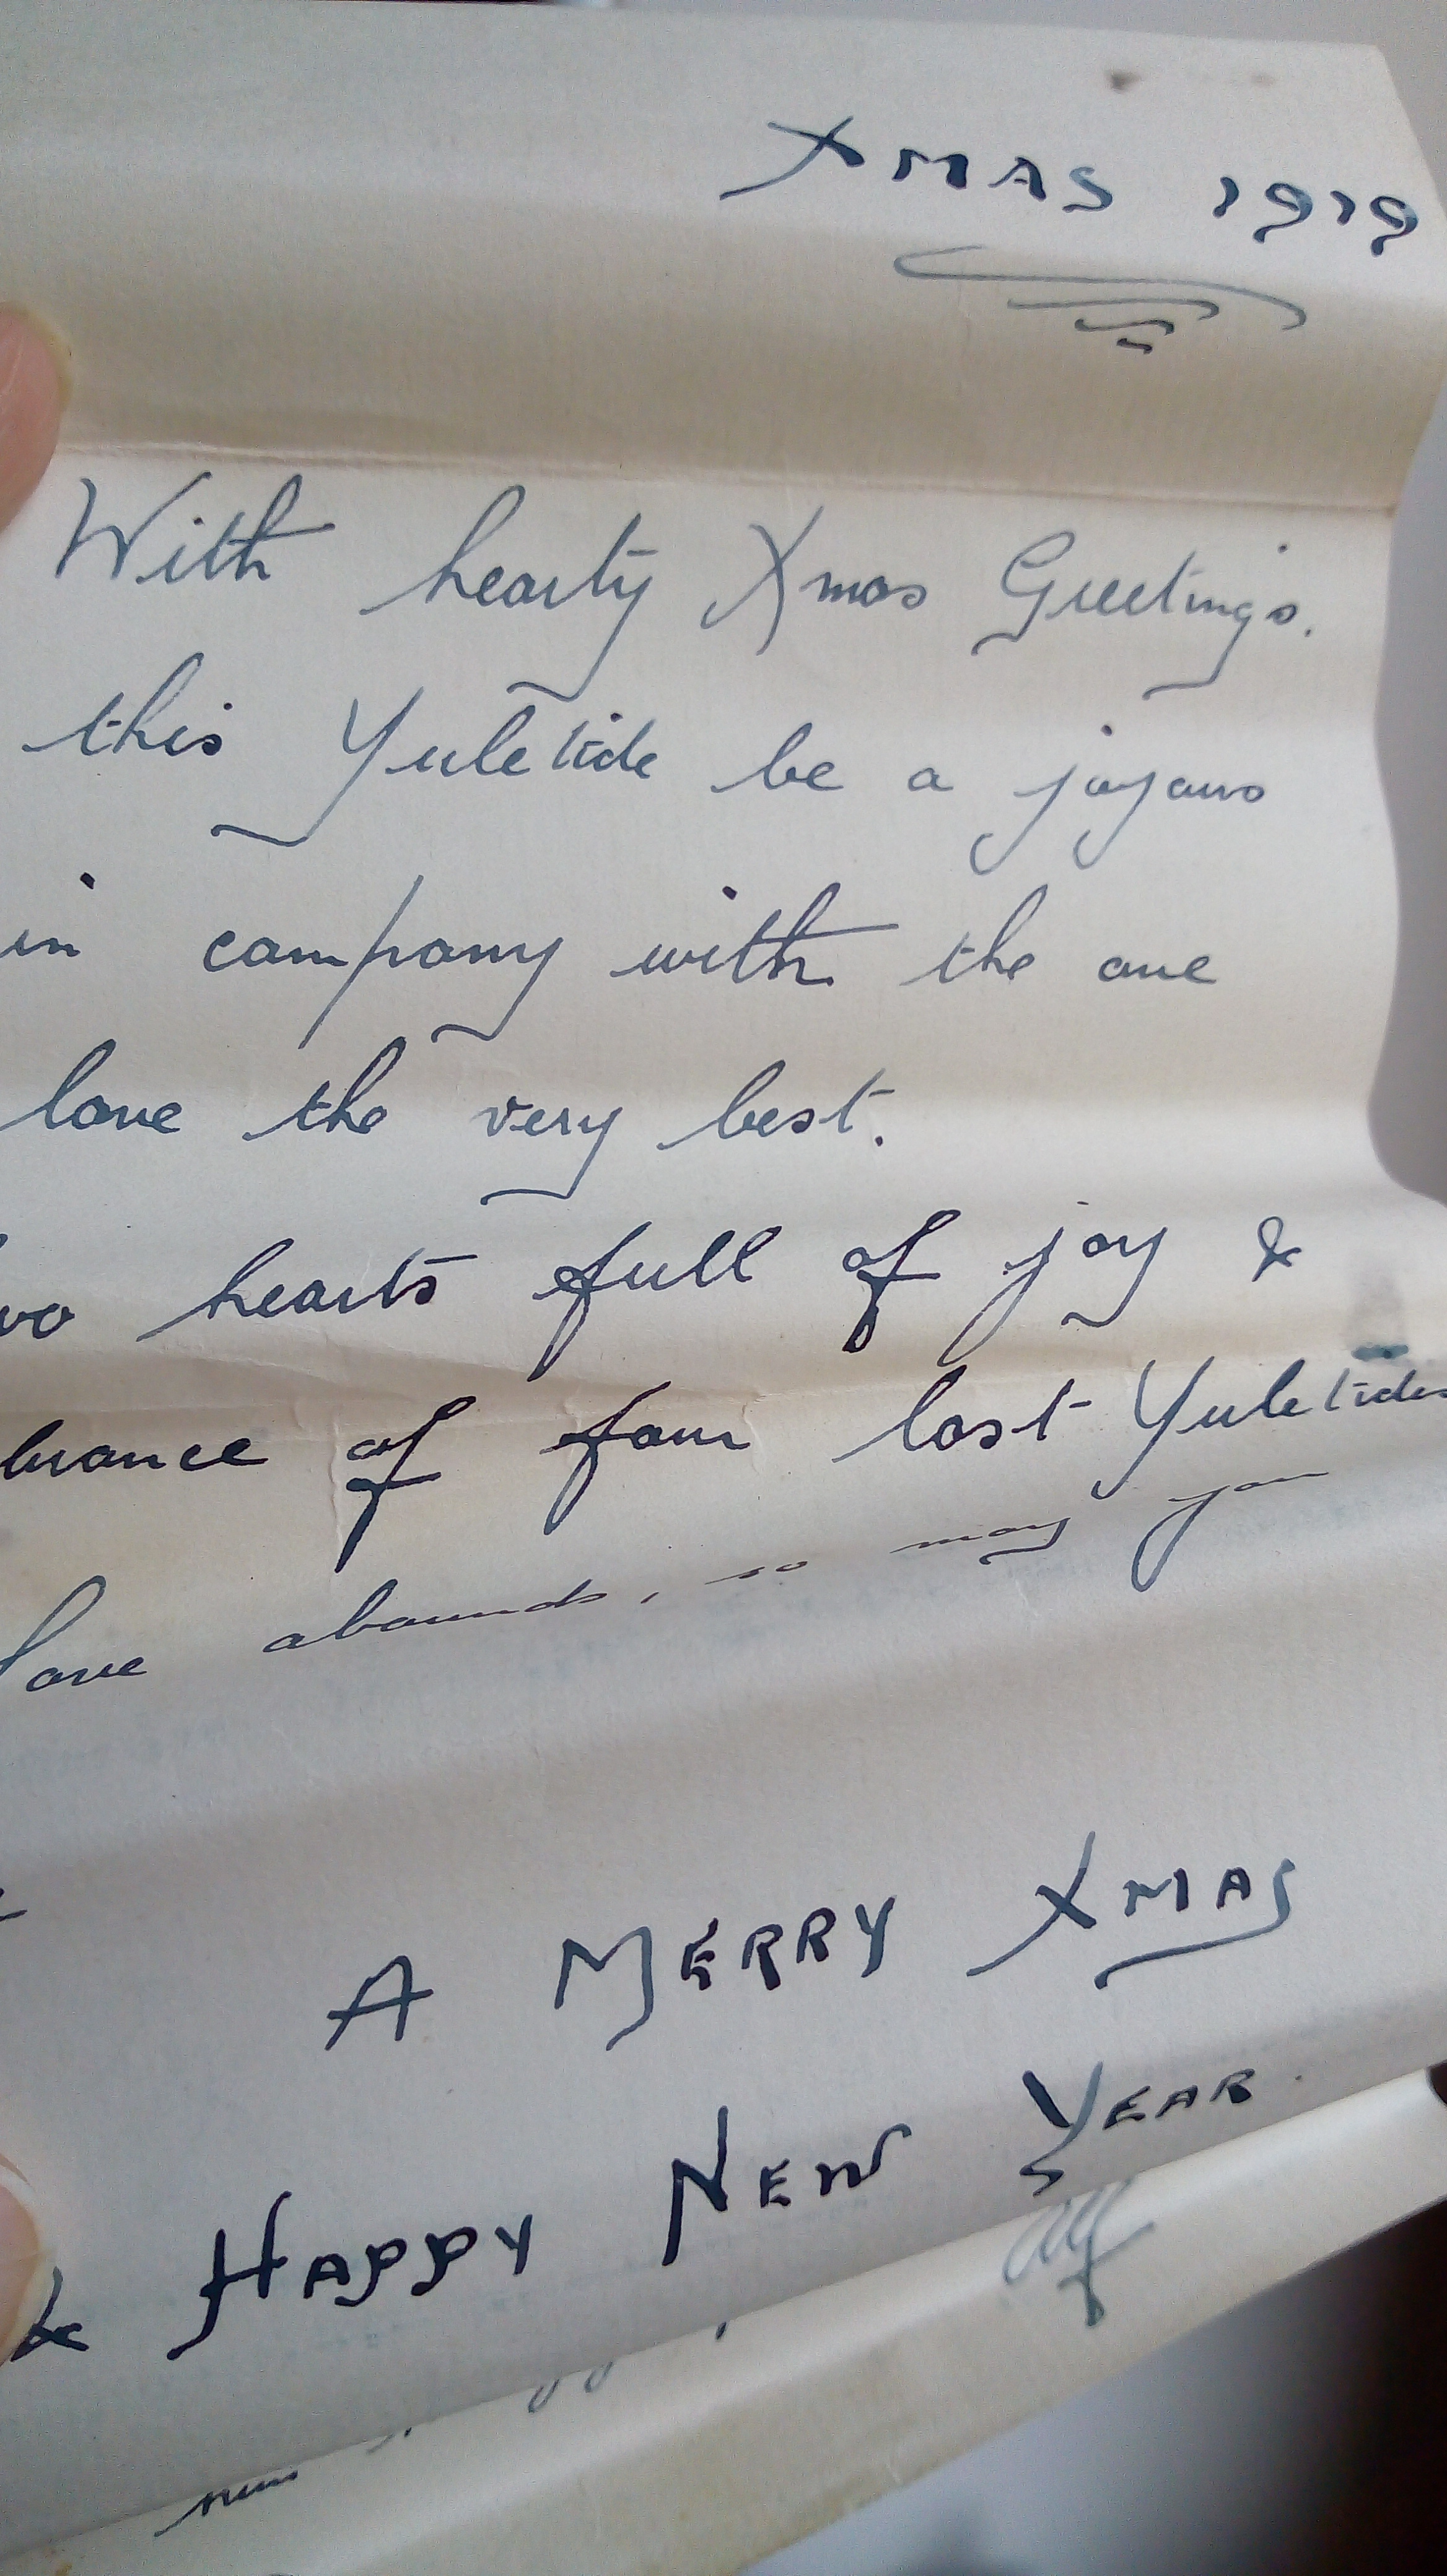 XMAS 1919
With hearty Xmas Greetings.
this Yuletide be a joyous
in company with the one
love the very best.
hearts full of joy &
brance of four lost Yuletides
love abounds, so may you
A MERRY XMAS
& HAPPY NEW YEAR.